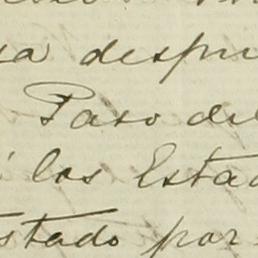 sa despu
Paso del
los Estad
stado por